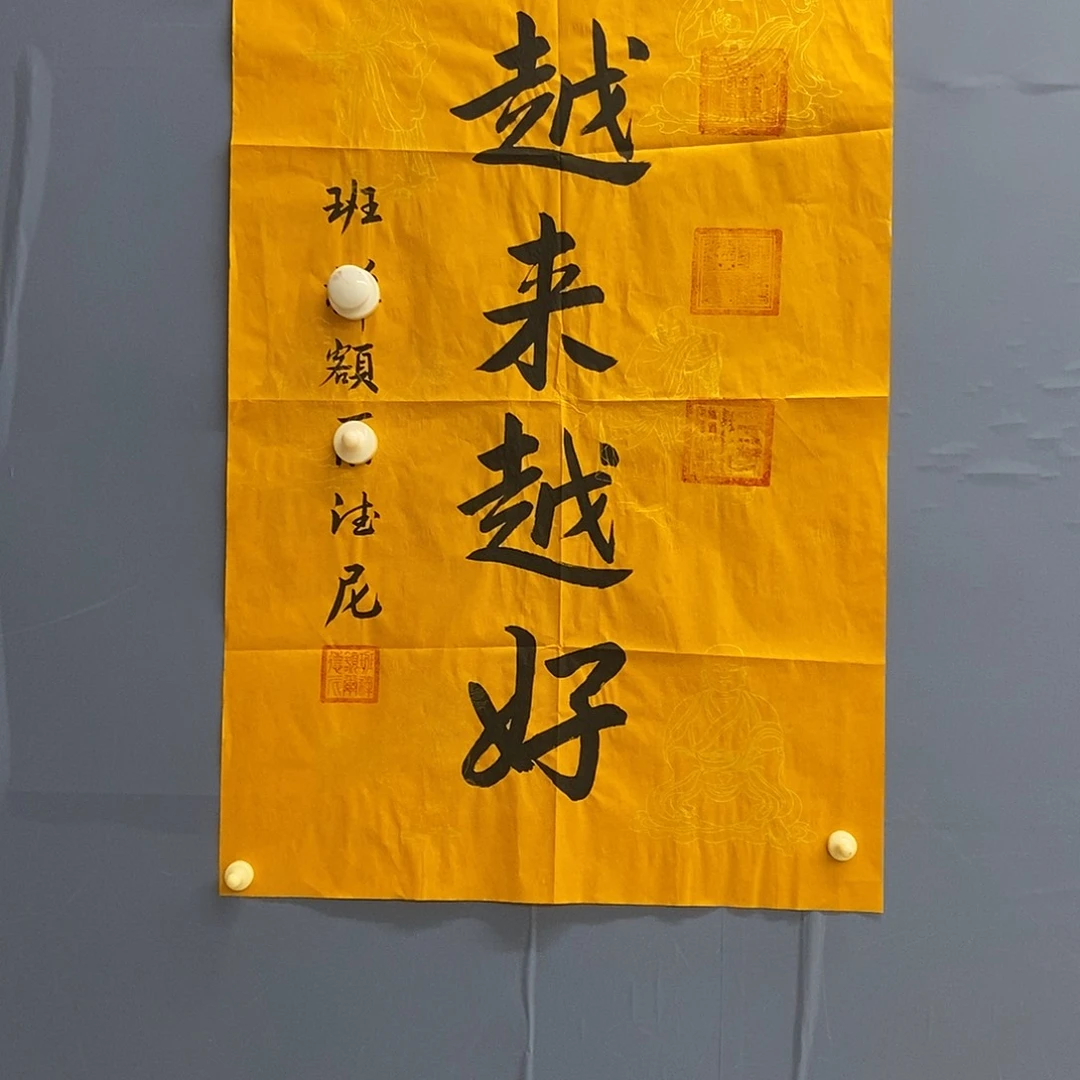 越来越好
班
額
德尼